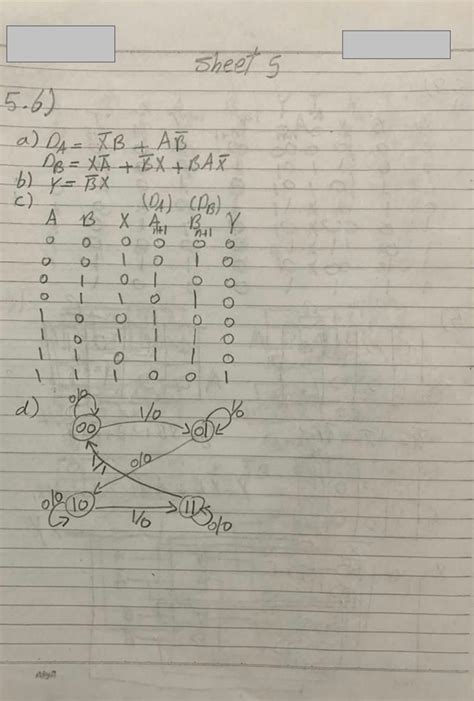 Sheet 5
5.6)
a) D_A = X̅B + AB̅
D_B = XA̅ + B̅X + BAX̅
b) Y = B̅X
c) (D_A) (D_B)
A B X A_{n+1} B_{n+1} Y
0 0 0 0 0 0
0 0 1 0 1 0
0 1 0 1 0 0
0 1 1 0 1 0
1 0 0 1 0 0
1 0 1 1 1 0
1 1 0 1 1 0
1 1 1 0 0 1
d) 0/0
00 1/0 01 1/0
1/1 0/0
0/0 10 1/0 11 0/0